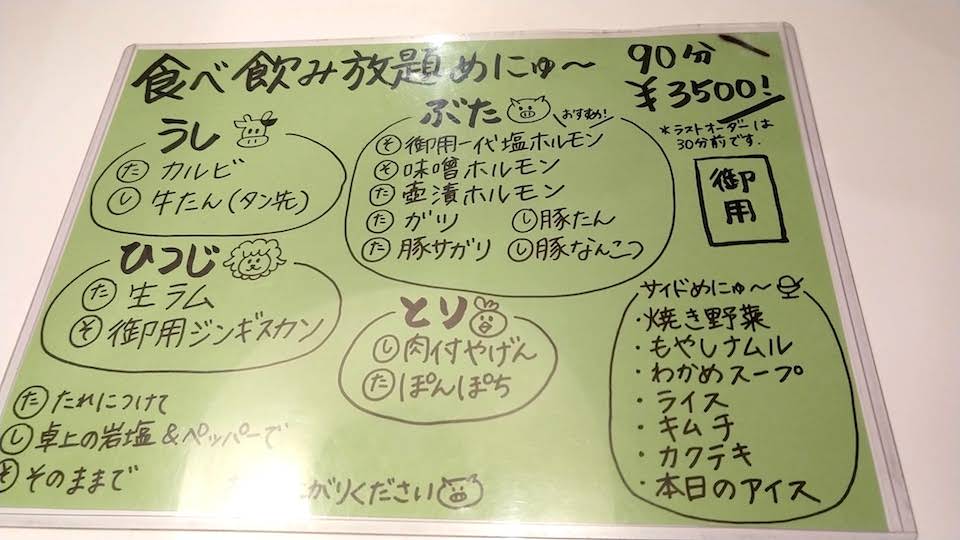 食べ飲み放題めにゅ〜
90分
¥3500!
*ラストオーダーは
30分前です.
御用
うし
た カルビ
し 牛たん(タン先)
ぶた おすすめ!
そ 御用一代塩ホルモン
そ 味噌ホルモン
た 壺漬ホルモン
た ガツ し 豚たん
た 豚サガリ し 豚なんこつ
ひつじ
た 生ラム
そ 御用ジンギスカン
とり
し 肉付やげん
た ぽんぽち
サイドめにゅ〜
・焼き野菜
・もやしナムル
・わかめスープ
・ライス
・キムチ
・カクテキ
・本日のアイス
た たれにつけて
し 卓上の岩塩&ペッパーで
そ そのままで
がりください